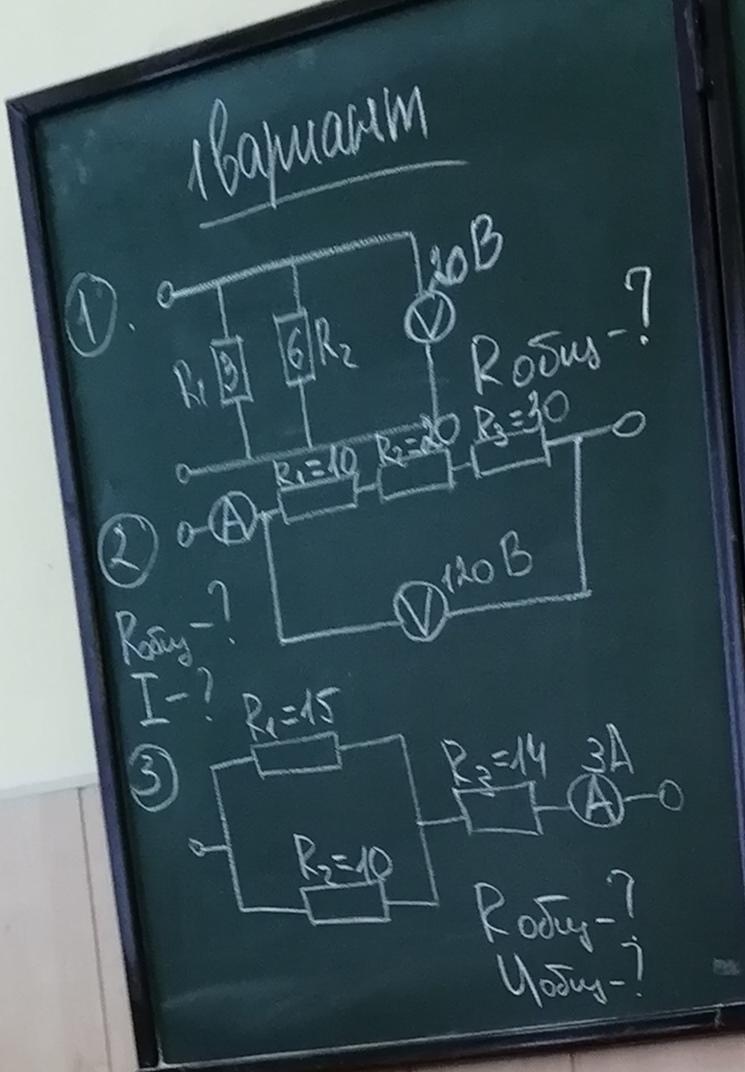 1 вариант
1.
20В
V
R₁ 3
6 R₂
Rобщ-?
2
A
R₁=10
R₂=20
R₃=30
V
120В
Rобщ-?
I-?
3
R₁=15
R₂=10
R₃=14
3А
A
Rобщ-?
Uобщ-?